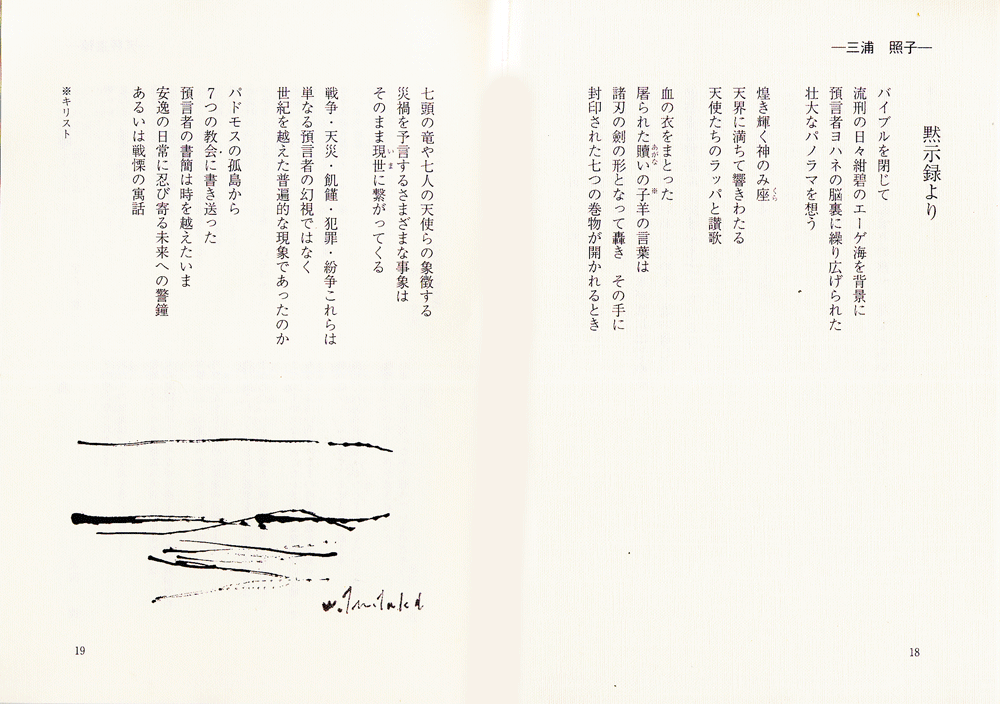 ―三浦　照子―
黙示録より
バイブルを閉じて
流刑の日々紺碧のエーゲ海を背景に
預言者ヨハネの脳裏に繰り広げられた
壮大なパノラマを想う
煌き輝く神のみ座
くら
天界に満ちて響きわたる
天使たちのラッパと讃歌
血の衣をまとった
屠られた贖いの子羊の言葉は
あがな
※
諸刃の劍の形となって轟き　その手に
封印された七つの巻物が開かれるとき
18
七頭の竜や七人の天使らの象徴する
災禍を予言するさまざまな事象は
そのまま現世に繋がってくる
いま
戦争・天災・飢饉・犯罪・紛争これらは
単なる預言者の幻視ではなく
世紀を越えた普遍的な現象であったのか
パドモスの孤島から
7つの教会に書き送った
預言者の書簡は時を越えたいま
安逸の日常に忍び寄る未来への警鐘
あるいは戦慄の寓話
※キリスト
19